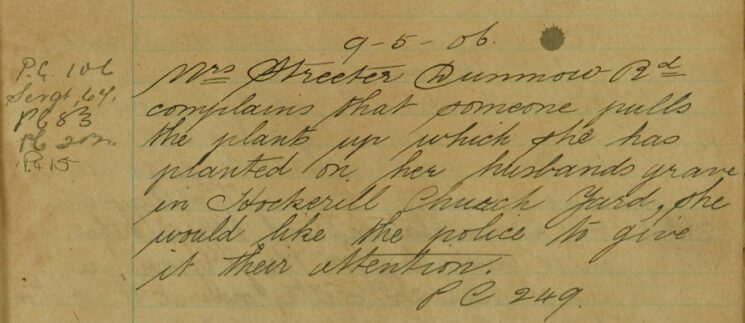 9-5-06.
P.C. 106
Sergt. 64.
PC 83
PC 202.
P. 15
Mrs Streeter Dunmow Rd
complains that someone pulls
the plants up which she has
planted on her husbands grave
in Hockerill Church Yard, she
would like the police to give
it their attention.
P C 249.